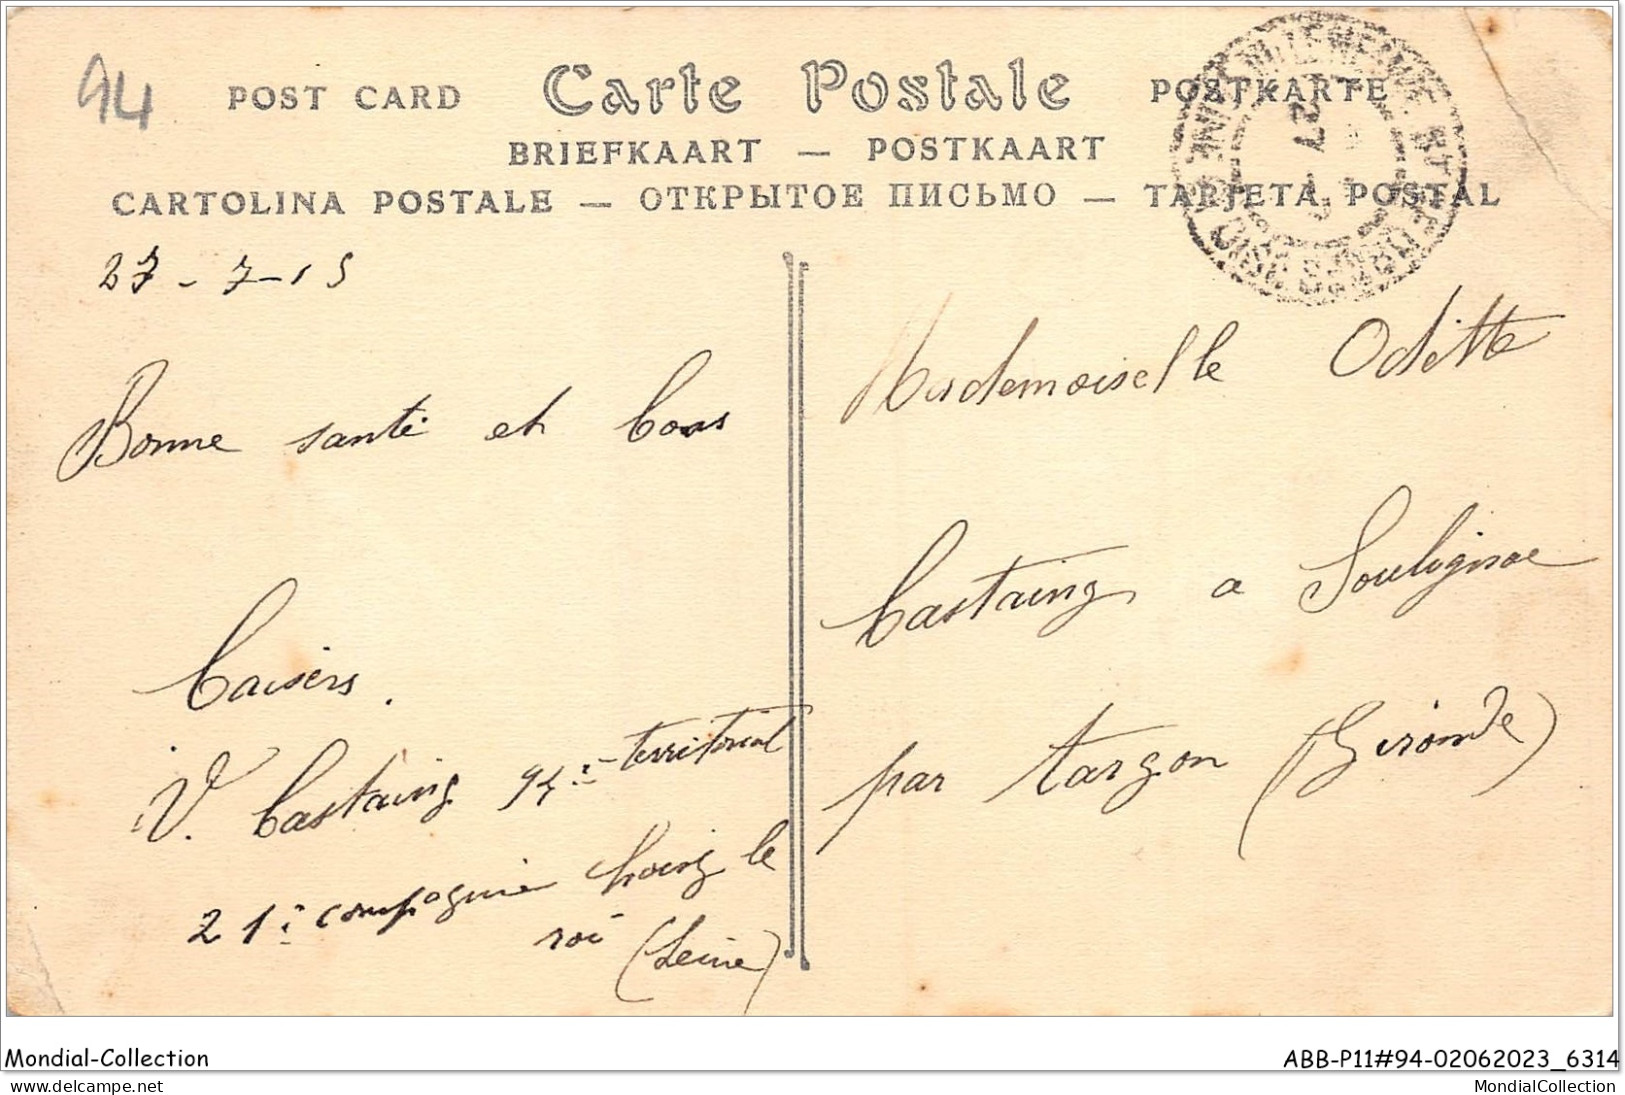 94
POST CARD Carte Postale POSTKARTE
BRIEFKAART — POSTKAART
CARTOLINA POSTALE — ОТКРЫТОЕ ПИСЬМО — TARJETA POSTAL
27-7-15
Bonne santé et bons
baisers.
V. Castaing 94e territorial
21e compagnie Choisy le
roi (Seine)
Mademoiselle Odette
Castaing a Soulignac
par Targon (Gironde)
Mondial-Collection
ABB-P11#94-02062023_6314
delcampe.net
MondialCollection